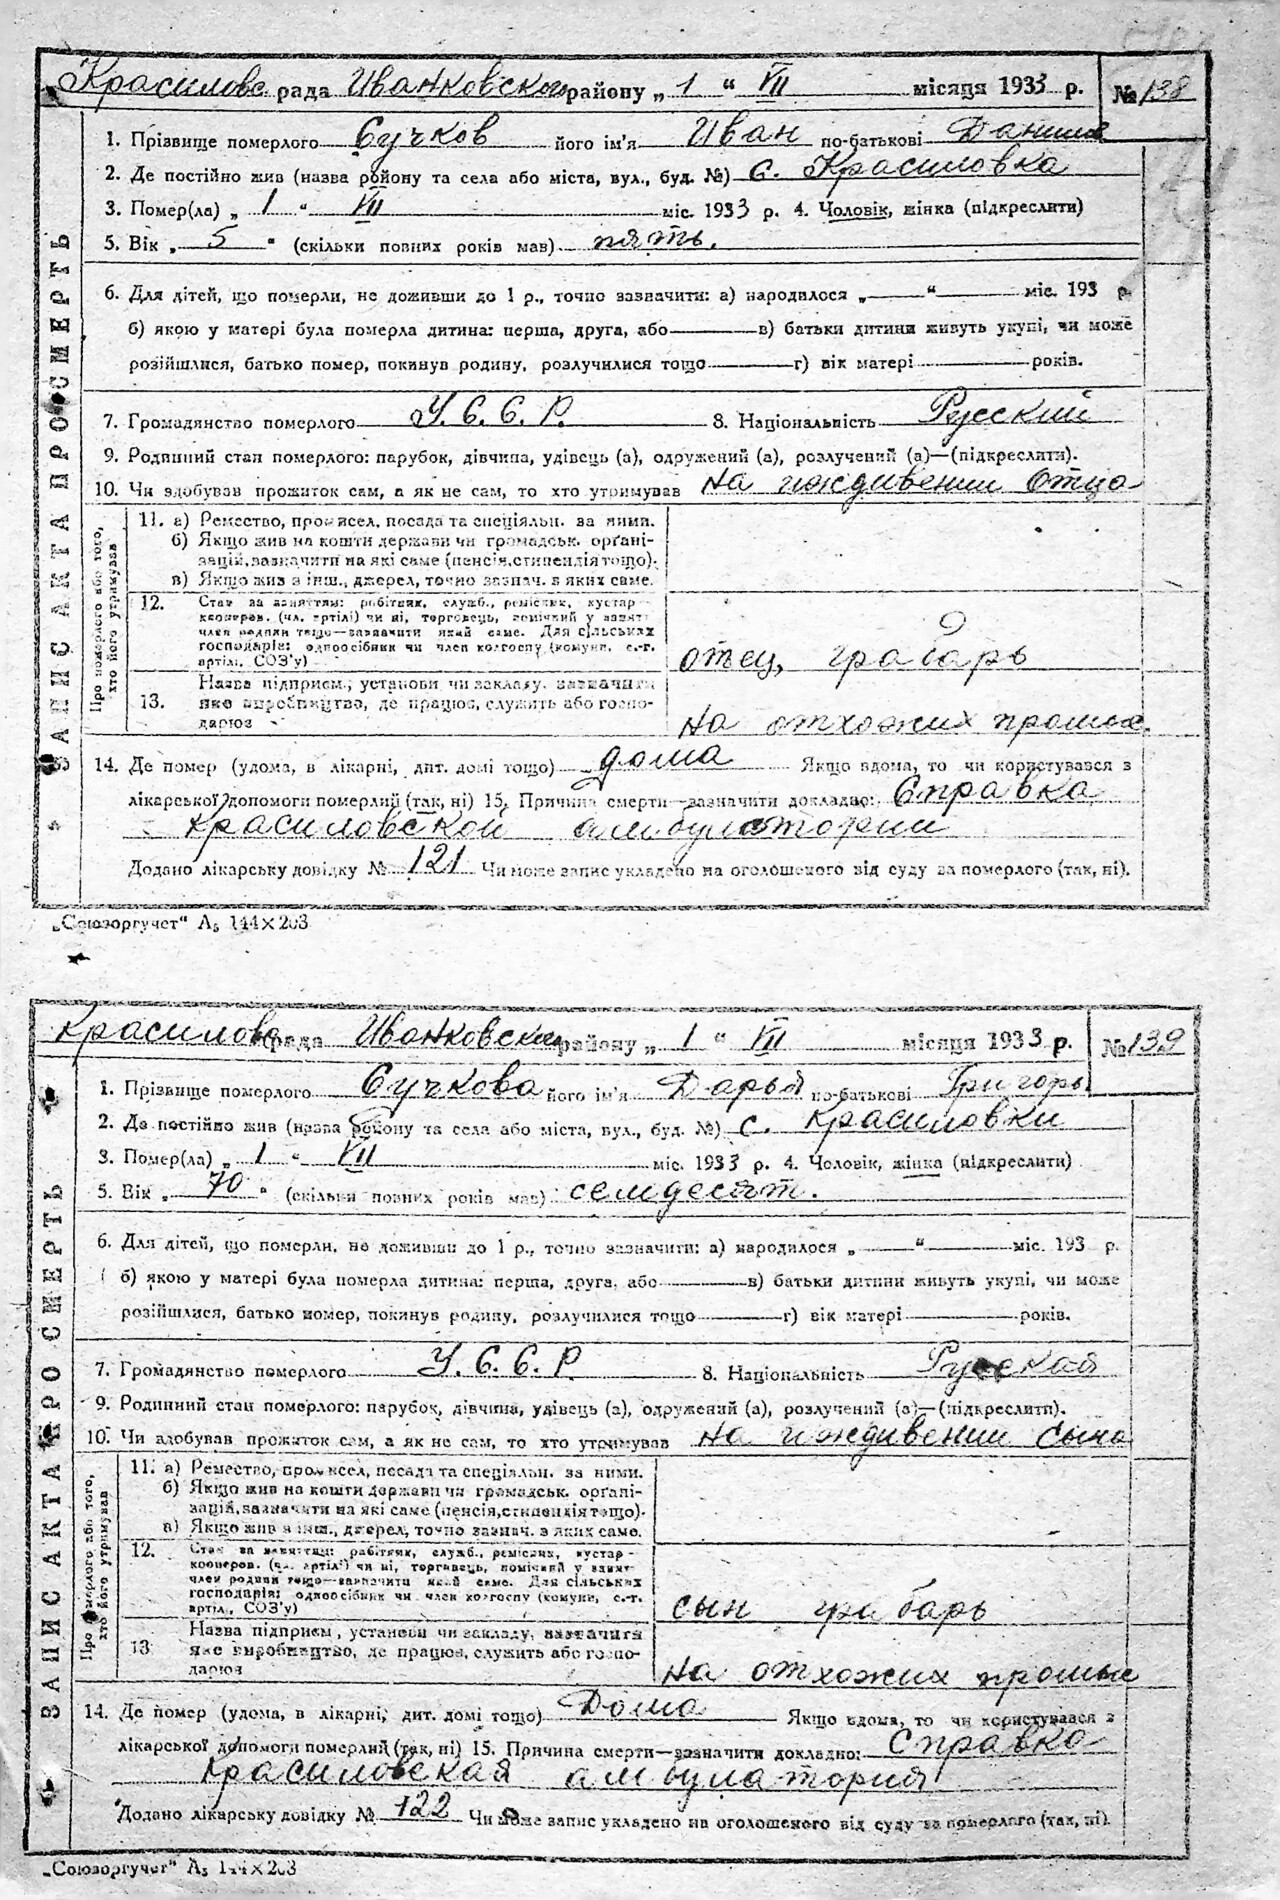 Красиловс рада Иванковского району „ 1 “ VII місяця 1933 р. № 138
1. Прізвище померлого Сучков його ім'я Иван по-батькові Данилов
2. Де постійно жив (назва району та села або міста, вул., буд. №) с. Красиловка
3. Помер(ла) „ 1 “ VII міс. 1933 р. 4. Чоловік, жінка (підкреслити)
5. Вік „ 5 “ (скільки повних років мав) пять.
6. Для дітей, що померли, не доживши до 1 р., точно зазначити: а) народилося „ “ міс. 193 р.
б) якою у матері була померла дитина: перша, друга, або в) батьки дитини живуть укупі, чи може
розійшлися, батько помер, покинув родину, розлучилися тощо г) вік матері років.
7. Громадянство померлого У.С.С.Р. 8. Національність Русский
9. Родинний стан померлого: парубок, дівчина, удівець (а), одружений (а), розлучений (а)—(підкреслити).
10. Чи здобував прожиток сам, а як не сам, то хто утримував на иждивении отца
ЗАПИС АКТА ПРО СМЕРТЬ
Про померлого або того, хто його утримував
11. а) Ремество, промисел, посада та спеціяльн. за ними.
б) Якщо жив на кошти держави чи громадськ. органі-
зацій, зазначити на які саме (пенсія, стипендія тощо).
в) Якщо жив з інш., джерел, точно зазнач. з яких саме.
12. Стан за заняттям: робітник, служб., ремісник, кустар-
кооперов. (чл. артілі) чи ні, торговець, помічний у занят.
член родини тощо—зазначити який саме. Для сільських
господарів: одноосібник чи член колгоспу (комуни, с.-г.
артіл., СОЗ'у) отец, грабарь
Назва підприєм., установи чи закладу, зазначити
13. яке виробництво, де працює, служить або госпо-
дарює на отхожих промыс.
14. Де помер (удома, в лікарні, дит. домі тощо) дома Якщо вдома, то чи користувався з
лікарської допомоги померлий (так, ні) 15. Причина смерти—зазначити докладно: Справка
Красиловской амбулатории
Додано лікарську довідку № 121 Чи може запис укладено на оголошеного від суду за померлого (так, ні).
„Союзоргучет“ А5 144×203
Красиловс рада Иванковски району „ 1 “ VII місяця 1933 р. № 139
1. Прізвище померлого Сучкова його ім'я Дарья по-батькові Григорь
2. Де постійно жив (назва району та села або міста, вул., буд. №) с. Красиловки
3. Помер(ла) „ 1 “ VII міс. 1933 р. 4. Чоловік, жінка (підкреслити)
5. Вік „ 70 “ (скільки повних років мав) семдесят.
6. Для дітей, що померли, не доживши до 1 р., точно зазначити: а) народилося „ “ міс. 193 р.
б) якою у матері була померла дитина: перша, друга, або в) батьки дитини живуть укупі, чи може
розійшлися, батько помер, покинув родину, розлучилися тощо г) вік матері років.
7. Громадянство померлого У.С.С.Р. 8. Національність Русская
9. Родинний стан померлого: парубок, дівчина, удівець (а), одружений (а), розлучений (а)—(підкреслити).
10. Чи здобував прожиток сам, а як не сам, то хто утримував на иждивении сына
ЗАПИС АКТА ПРО СМЕРТЬ
Про померлого або того, хто його утримував
11. а) Ремество, промисел, посада та спеціяльн. за ними.
б) Якщо жив на кошти держави чи громадськ. органі-
зацій, зазначити на які саме (пенсія, стипендія тощо).
в) Якщо жив з інш., джерел, точно зазнач. з яких саме.
12. Стан за заняттям: робітник, служб., ремісник, кустар-
кооперов. (чл. артілі) чи ні, торговець, помічний у занят.
член родини тощо—зазначити який саме. Для сільських
господарів: одноосібник чи член колгоспу (комуни, с.-г.
артіл., СОЗ'у) сын грабарь
Назва підприєм., установи чи закладу, зазначити
13. яке виробництво, де працює, служить або госпо-
дарює на отхожих промыс
14. Де помер (удома, в лікарні, дит. домі тощо) Дома Якщо вдома, то чи користувався з
лікарської допомоги померлий (так, ні) 15. Причина смерти—зазначити докладно: Справка
Красиловская амбулатория
Додано лікарську довідку № 122 Чи може запис укладено на оголошеного від суду за померлого (так, ні).
„Союзоргучет“ А5 144×203